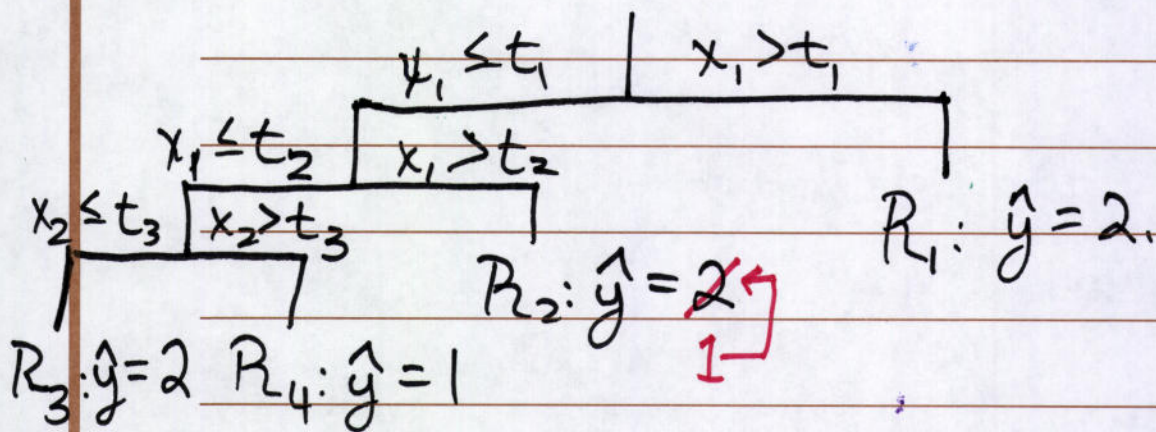 x₁ ≤ t₁ x₁ > t₁
x₁ ≤ t₂ x₁ > t₂
x₂ ≤ t₃ x₂ > t₃
R₁: ŷ = 2.
R₂: ŷ = 2
1
R₃: ŷ = 2 R₄: ŷ = 1